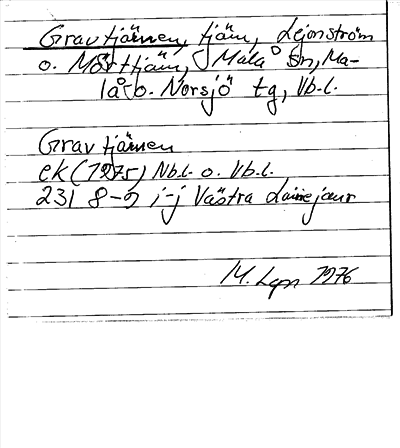 Gravtjärnen, tjärn, Lejonström
o. Mörttjärn, Malå sn, Ma-
lå-o. Norsjö tg, Vb.l.
Gravtjärnen
ek (1975) Nb.l. o. Vb.l.
231 8-9 i-j Västra Lainejaur
M. Lgn 1976